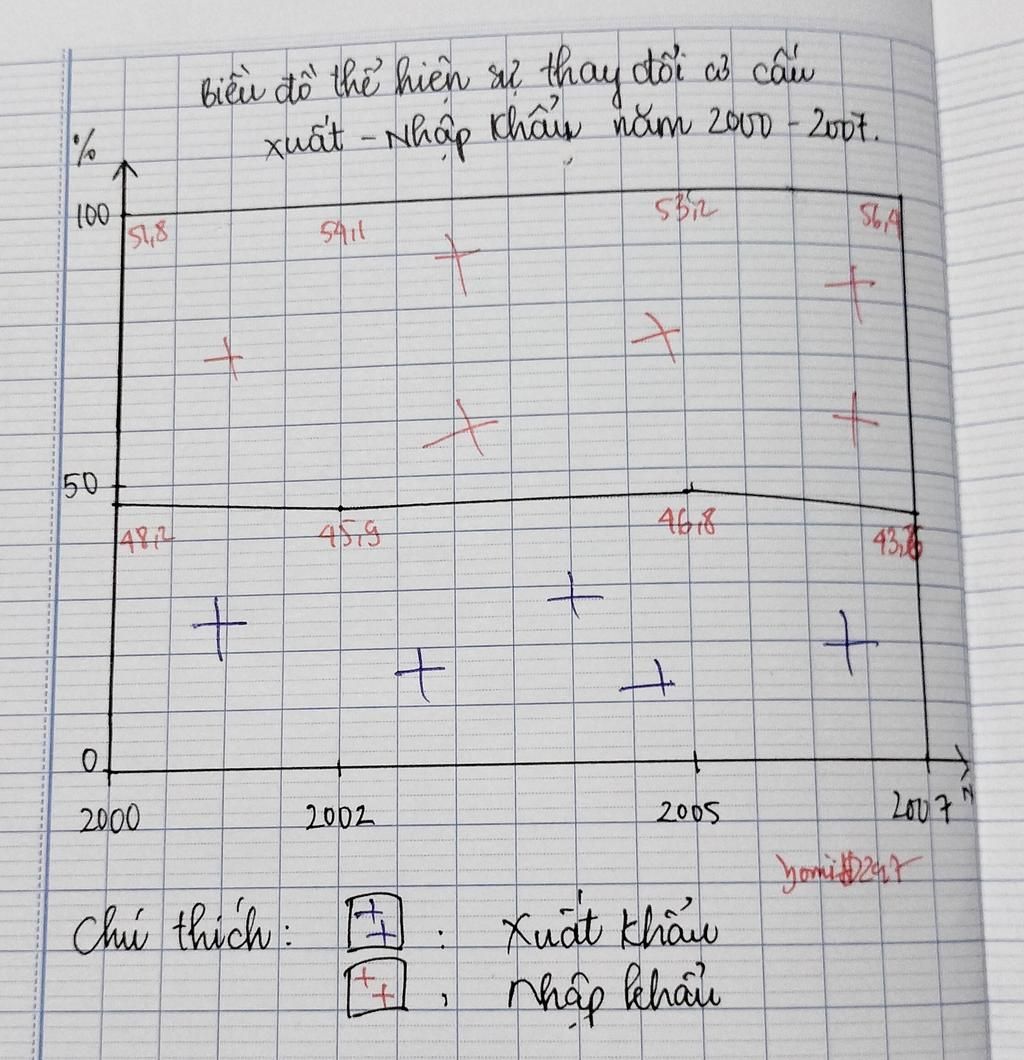 Biểu đồ thể hiện sự thay đổi cơ cấu
xuất - Nhập khẩu năm 2000 - 2007.
%
100
51,8 54,1 53,2 56,4
50
48,2 45,9 46,8
0
2000 2002 2005 2007 N
Chú thích: : Xuất khẩu
: Nhập khẩu